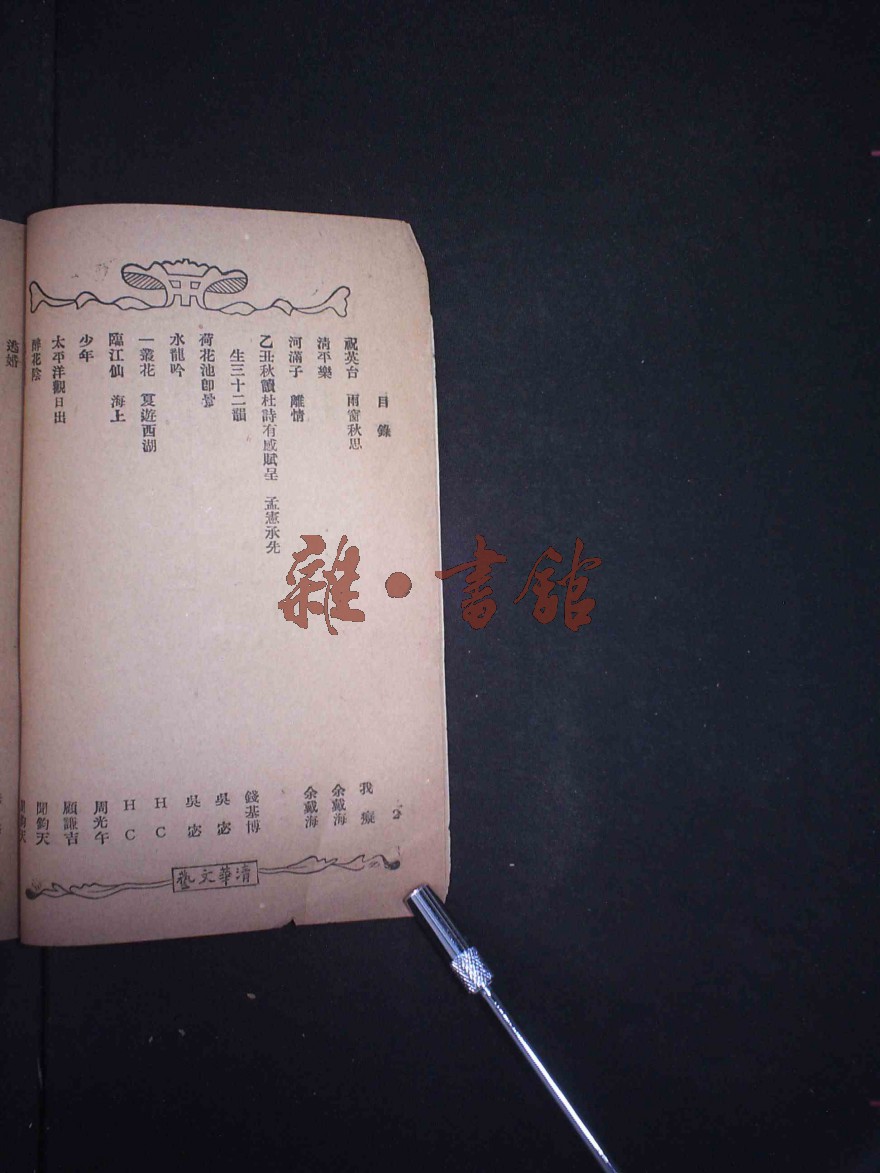 目錄
祝英台　雨窗秋思
清平樂
河滿子　離情
乙丑秋讀杜詩有感賦呈　孟憲承先
生三十二韻
荷花池即景
水龍吟
一叢花　夏遊西湖
臨江仙　海上
少年
太平洋觀日出
醉花陰
逃婚
2
我癡
余戴海
余戴海
錢基博
吳宓
吳宓
H C
H C
周光午
顧謙吉
聞鈞天
清華文藝
雜・書館